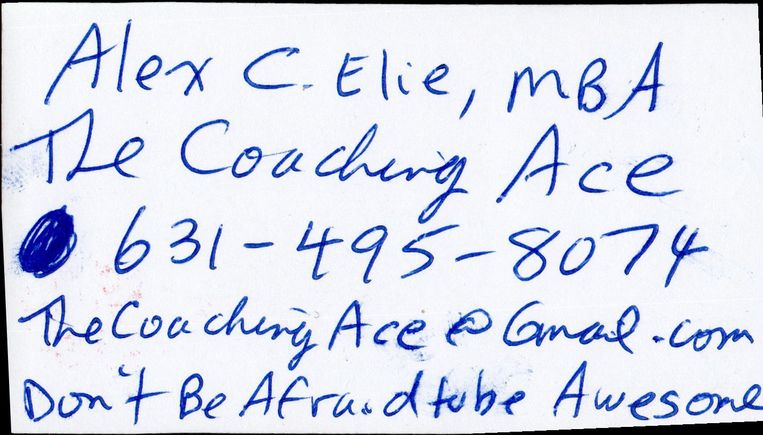 Alex C. Elie, MBA
The Coaching Ace
631-495-8074
TheCoachingAce@Gmail.com
Don't Be Afraid to be Awesome